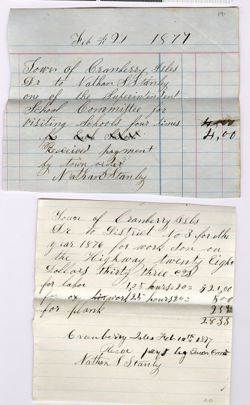 Feb 21 1877
Town of Cranberry Isles
Dr to Nathan S Stanley
one of the Superintendent
School Committe for
visiting Schools four times
4,00
Received payment
by town order
Nathan S Stanley
Town of Cranberry Isles
Dr to District No 3 for the
year 1876 for work don on
the Highway twenty Eight
Dollars thirty three cts
for labor hours 20 = $21,00
for ox work 25 hours 20 = 5.00
for plank
2833
Cranberry Isles Feb 1877
Nathan S Stanley